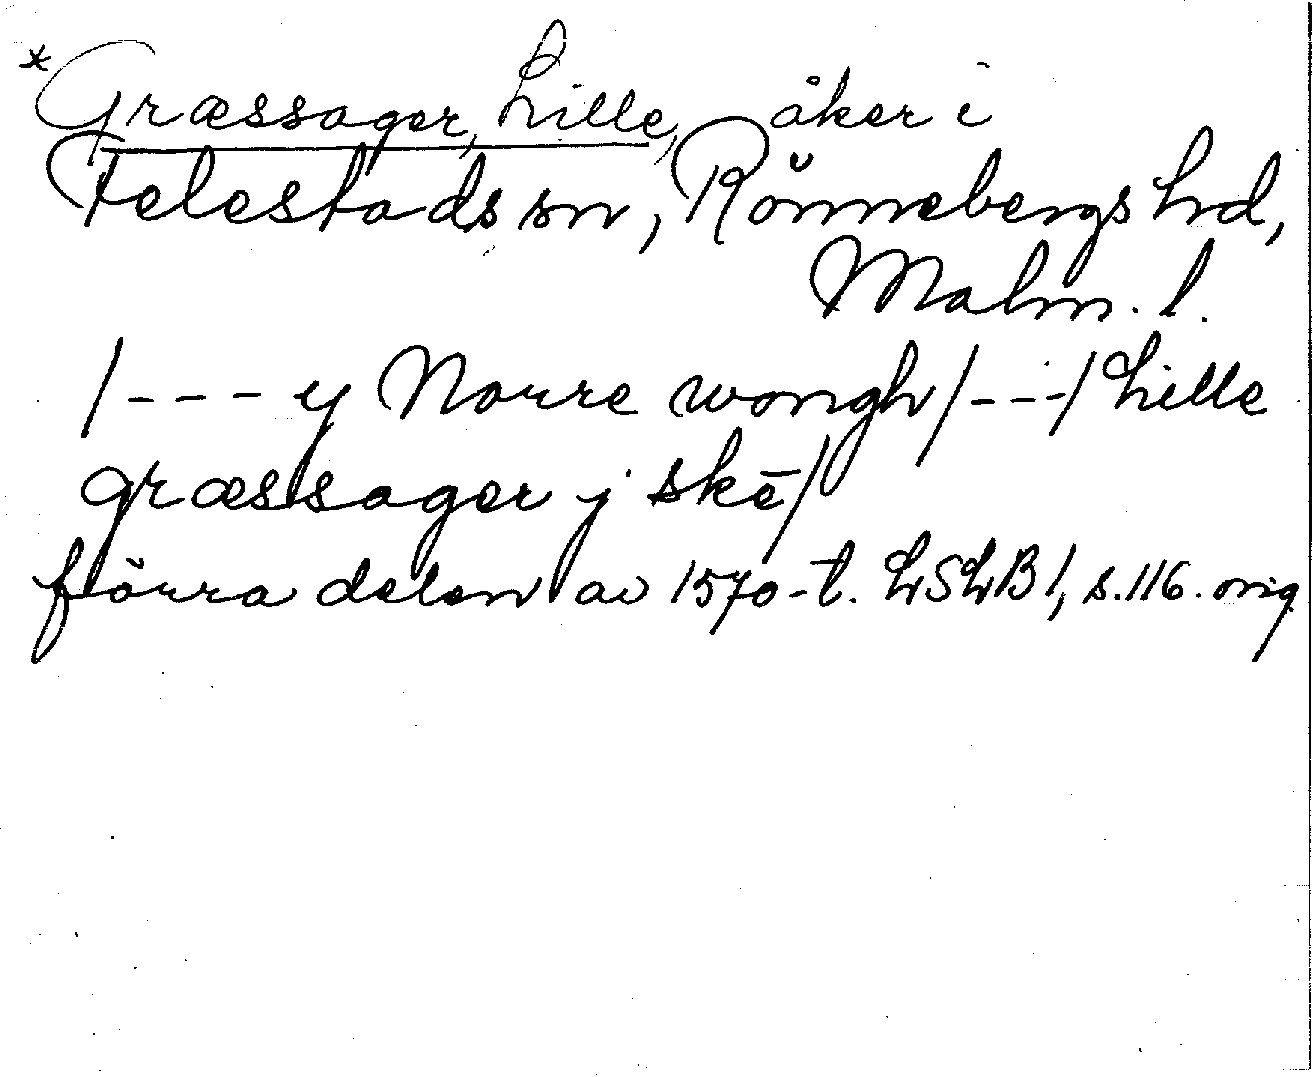 *Græssager, Lille, åker i
Felestads sn, Rönnebergs hrd,
Malm. l.
/--- y Norre wongh/---/ Lille
græssager j skē/
förra delen av 1570-t. LSLB 1, s. 116. orig